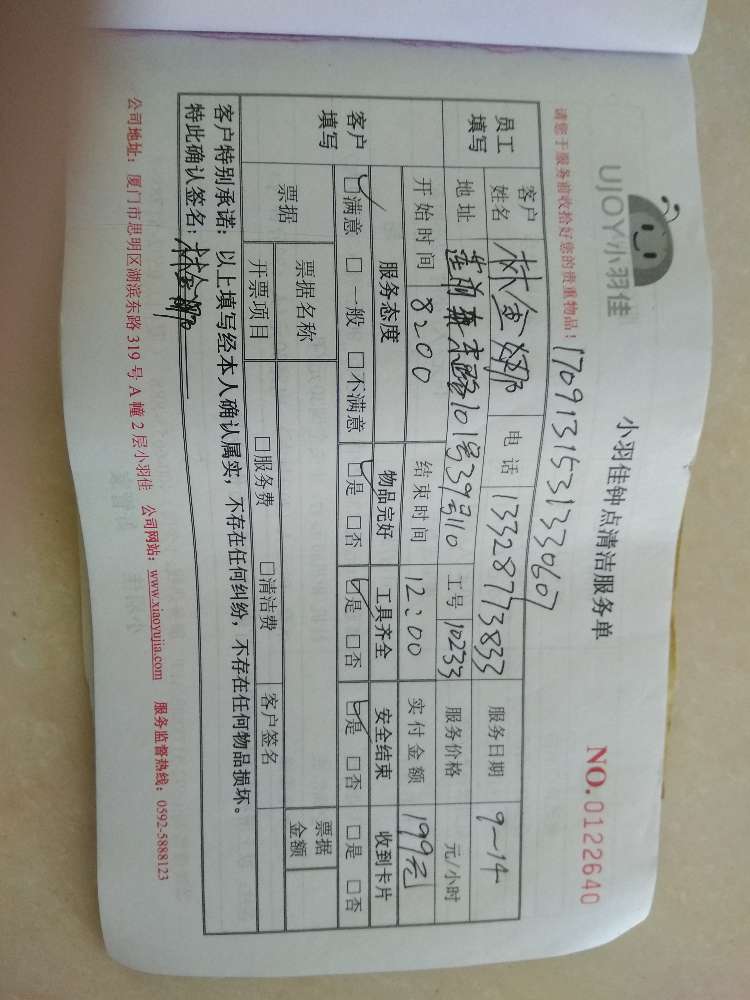 UJOY小羽佳
小羽佳钟点清洁服务单
NO.0122640
请您于服务前收拾好您的贵重物品!
1709131531533067
员工填写
客户姓名 林金 电话 13328773833 服务日期 9-14
地址 莲前 路101号39号110 工号 10233 服务价格 元/小时
开始时间 8:00 结束时间 12:00 实付金额 199元
客户填写
服务态度 物品完好 工具齐全 安全结束 收到卡片
☑满意 □一般 □不满意 ☑是 □否 ☑是 □否 ☑是 □否 □是 □否
票据 票据名称 票据金额
开票项目 □服务费 □清洁费 客户签名
客户特别承诺:以上填写经本人确认属实,不存在任何纠纷,不存在任何物品损坏。
特此确认签名:林金
公司地址:厦门市思明区湖滨东路 319 号 A 幢 2 层小羽佳 公司网站:www.xiaoyujia.com 服务监督热线:0592-5888123